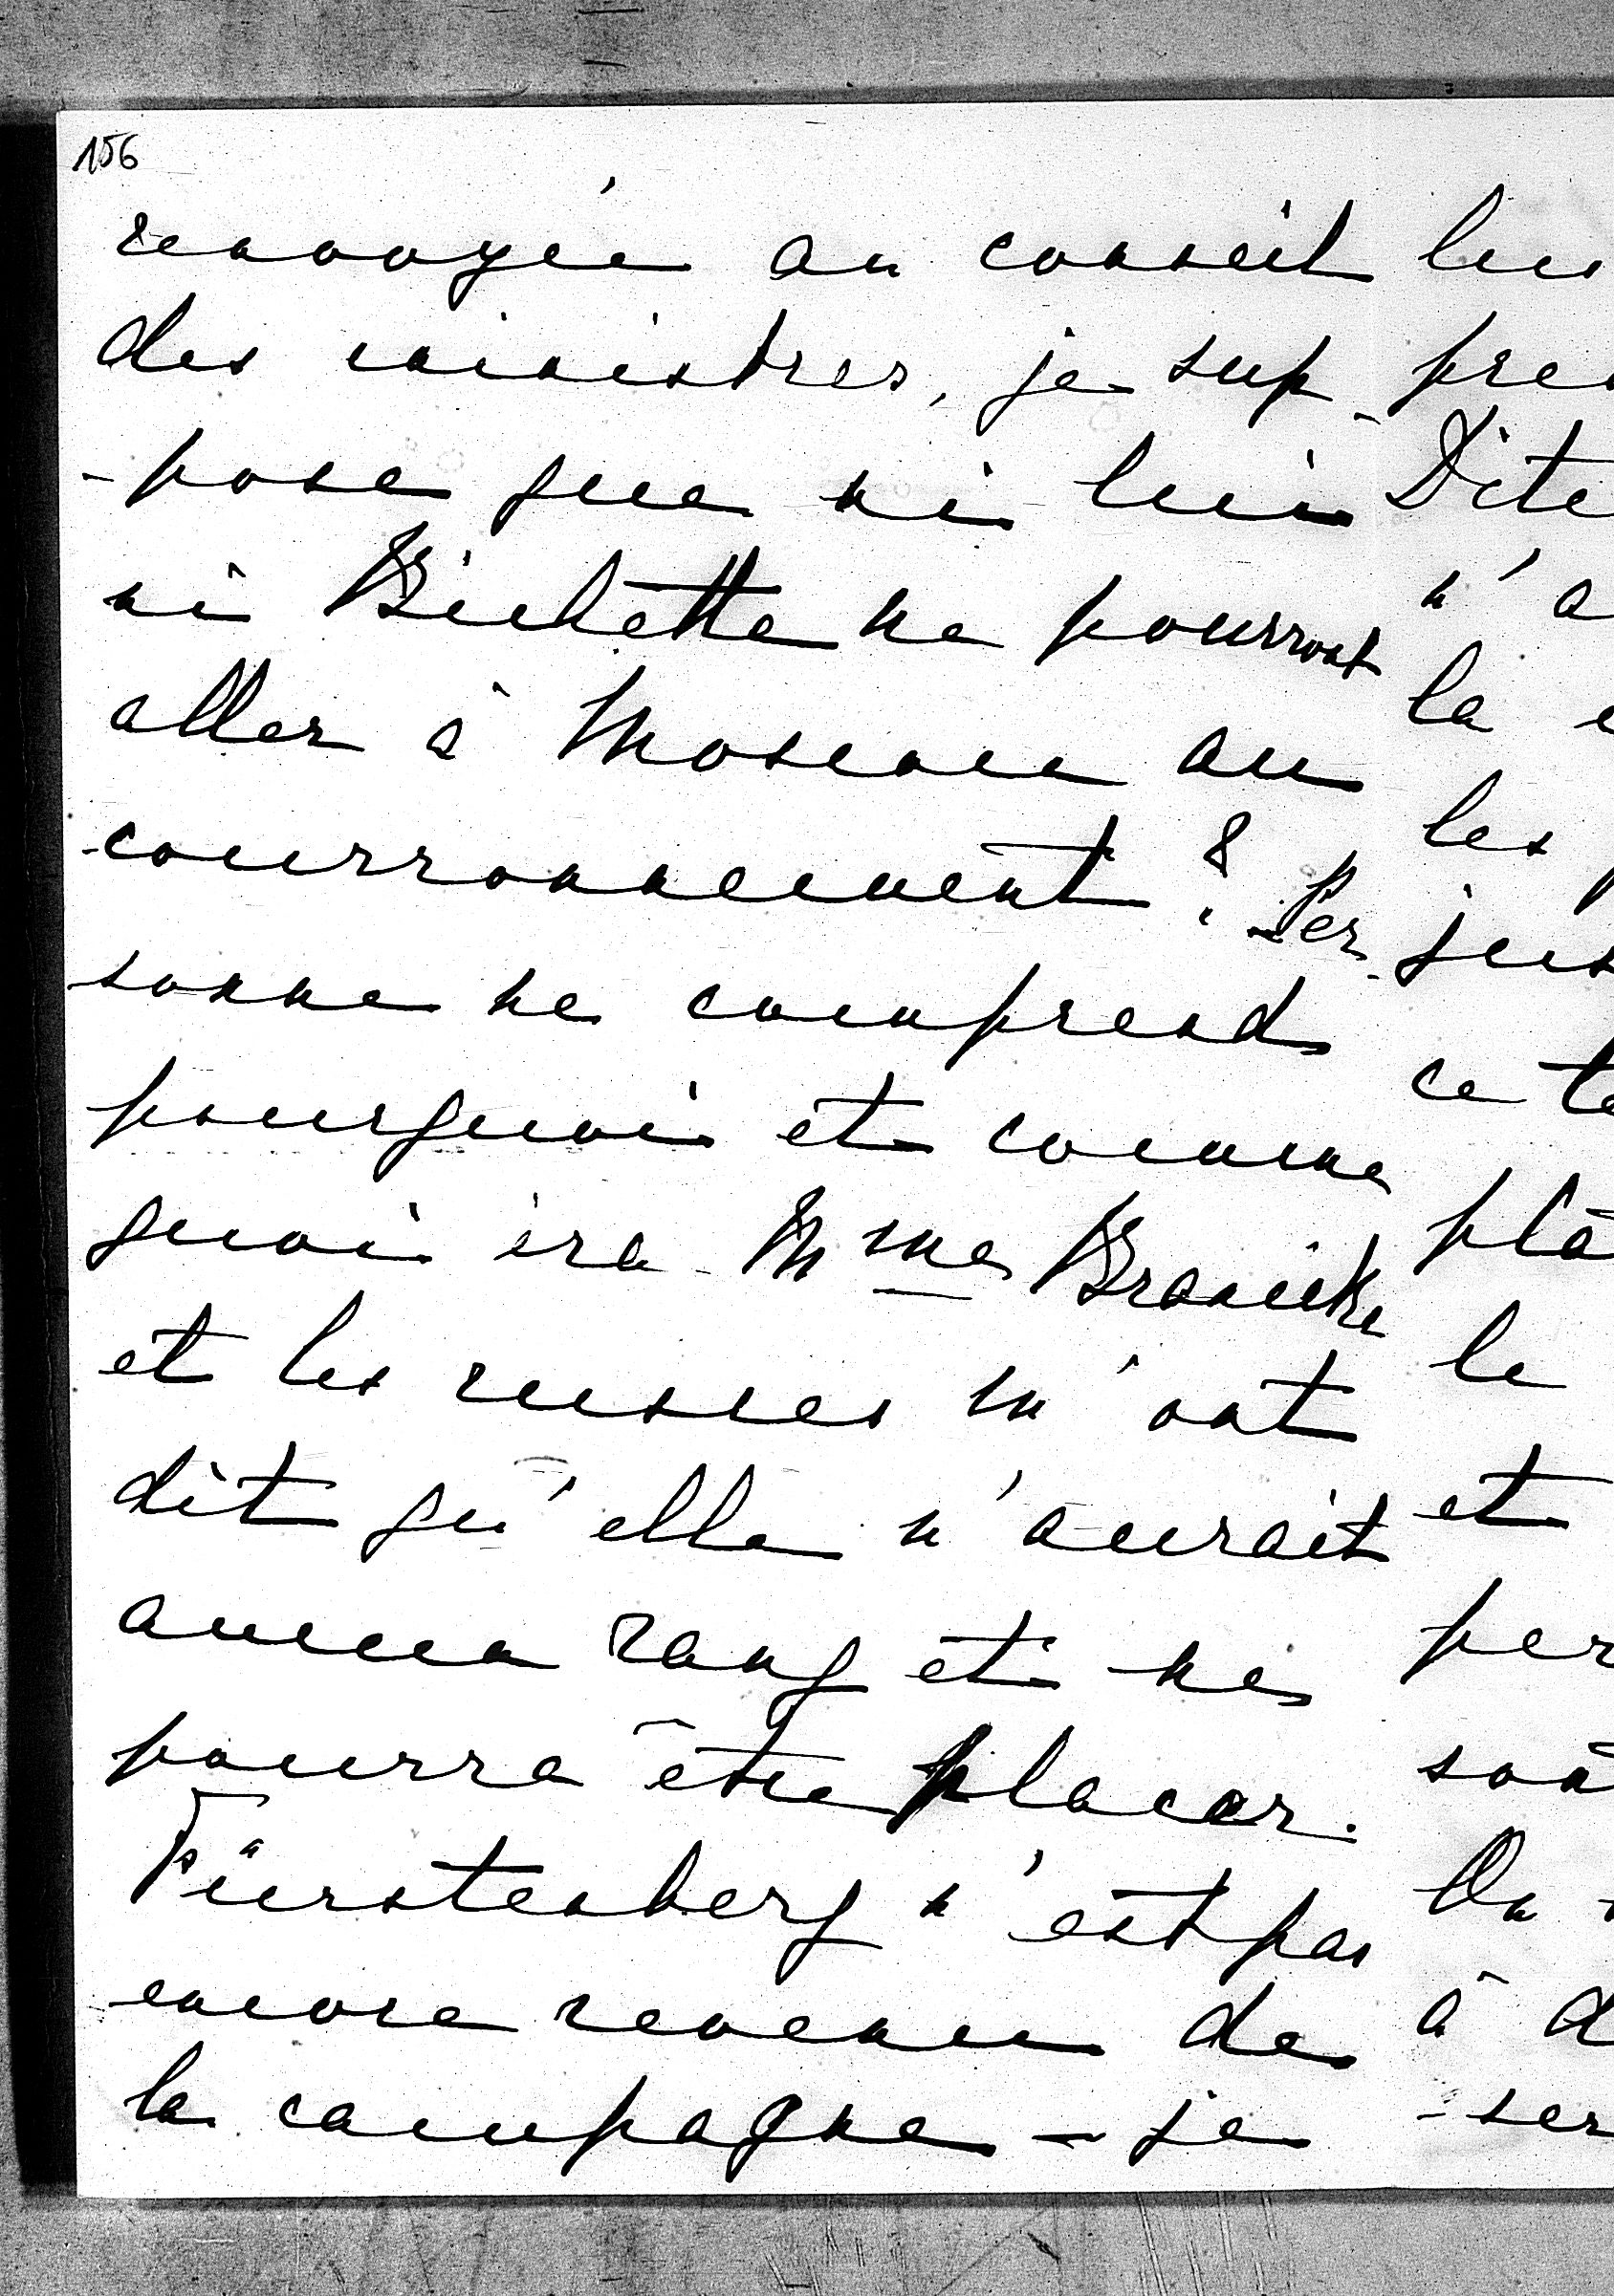 156
renvoyée au conseil
des ministres, je sup-
-pose que ni lui
ni Bichette ne pourront
aller à Moscou au
courronnement? Per-
sonne ne comprend
pourquoi et comme
quoi ira Mme Branicka
et les russes m'ont
dit qu'elle n'aurait
aucun rang et ne
pourra être placer.
Fürstenberg n'est pas
encore revenu de
la campagne - je
lui
pres
Dite
n'a
la
les
jus
ce
pla
le
et
per
On
à
-ser